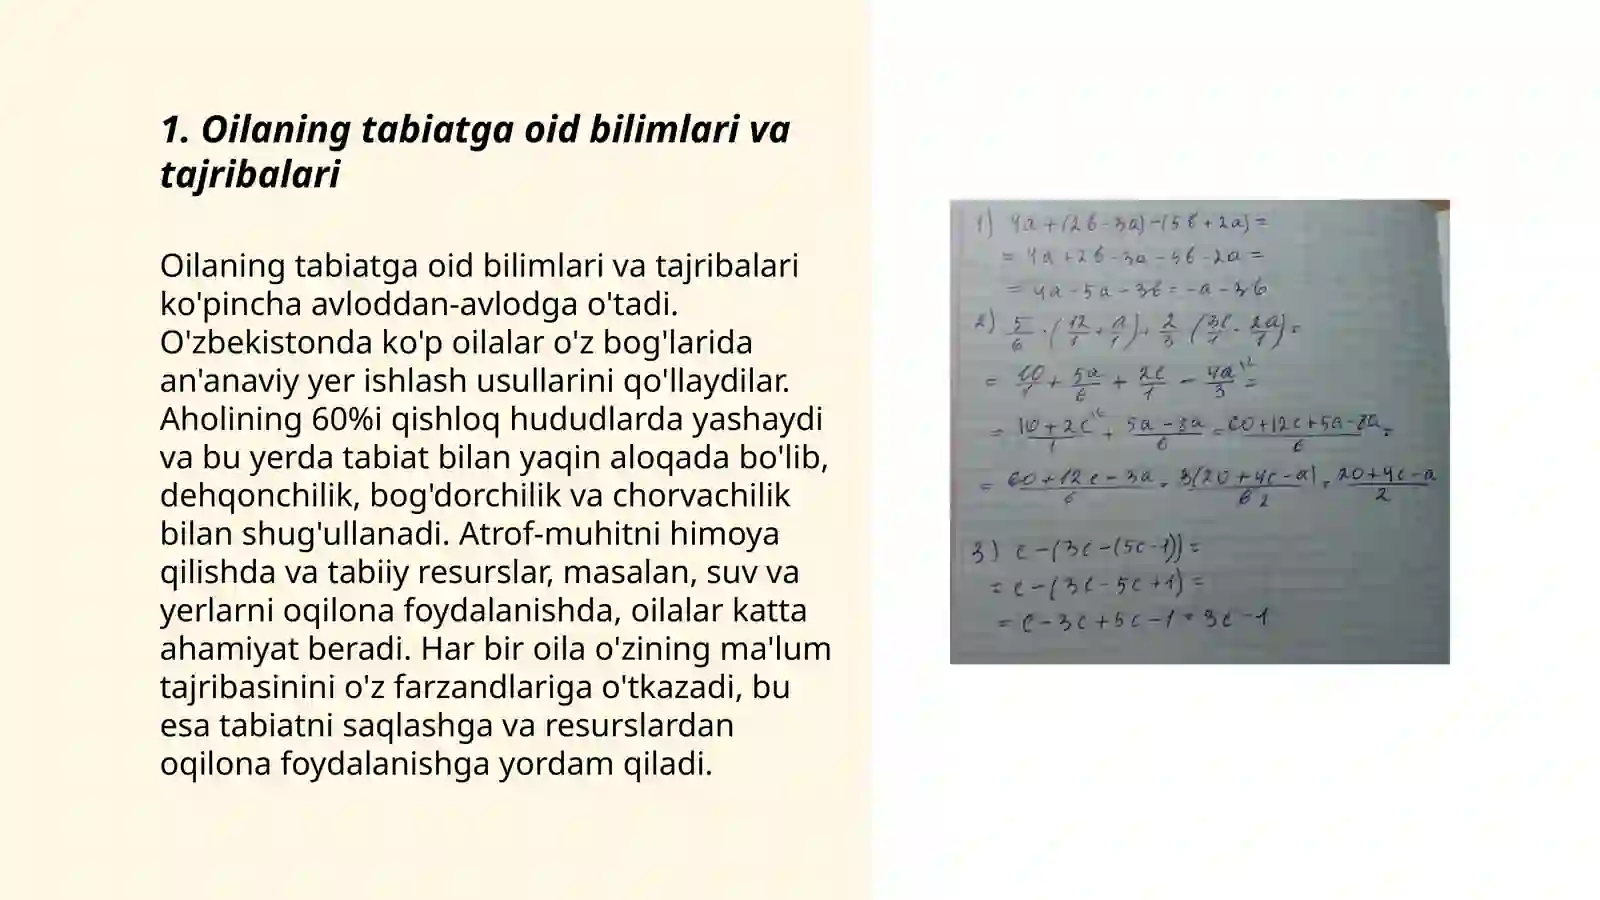 1. Oilaning tabiatga oid bilimlari va
tajribalari
Oilaning tabiatga oid bilimlari va tajribalari
ko'pincha avloddan-avlodga o'tadi.
O'zbekistonda ko'p oilalar o'z bog'larida
an'anaviy yer ishlash usullarini qo'llaydilar.
Aholining 60%i qishloq hududlarda yashaydi
va bu yerda tabiat bilan yaqin aloqada bo'lib,
dehqonchilik, bog'dorchilik va chorvachilik
bilan shug'ullanadi. Atrof-muhitni himoya
qilishda va tabiiy resurslar, masalan, suv va
yerlarni oqilona foydalanishda, oilalar katta
ahamiyat beradi. Har bir oila o'zining ma'lum
tajribasinini o'z farzandlariga o'tkazadi, bu
esa tabiatni saqlashga va resurslardan
oqilona foydalanishga yordam qiladi.
1) 4a+(2b-3a)-(5b+2a)=
= 4a+2b-3a-5b-2a=
= 4a-5a-3b=-a-3b
2) 5/6·(12/1+a/1)+2/3·(3c/1-2a/1)=
= 10/1+5a/6+2c/1-4a/3=
= 10+2c/1+5a-8a/6=60+12c+5a-8a/6=
= 60+12c-3a/6=3(20+4c-a)/6 2=20+4c-a/2
3) c-(3c-(5c-1))=
= c-(3c-5c+1)=
= c-3c+5c-1=3c-1